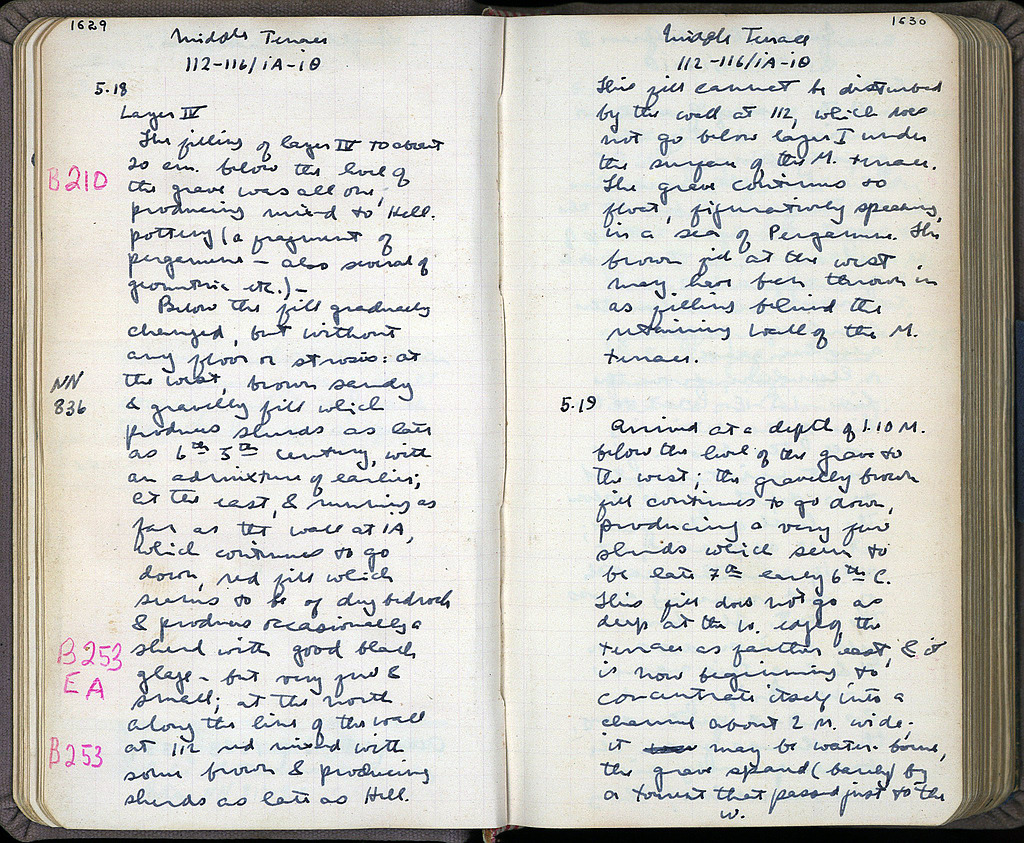 1629
Middle Terrace
112-116/iA-iΘ
5.18
Layer IV
The filling of layer IV to about
20 cm. below the level of
B 210
the grave was all one,
producing mixed to Hell.
pottery (a fragment of
pergamene - also several of
geometric etc.) -
Below the fill gradually
changed, but without
any floor or strosis: at
NN
836
the west, brown sandy
& gravelly fill which
produces sherds as late
as 6th 5th century, with
an admixture of earlier;
at the east, & running as
far as the wall at iA,
which continues to go
down, red fill which
seems to be of dug bedrock
& produces occasionally a
B 253
EA
sherd with good black
glaze - but very few &
small; at the north
along the line of the wall
B 253
at 112 red mixed with
some brown & producing
sherds as late as Hell.
1630
Middle Terrace
112-116/iA-iΘ
This fill cannot be disturbed
by the wall at 112, which does
not go below layer I under
the surface of the M. terrace.
The grave continues to
float, figuratively speaking,
in a sea of Pergamene. The
brown fill at the west
may have been thrown in
as filling behind the
retaining wall of the M.
terrace.
5.19
Arrived at a depth of 1.10 M.
below the level of the grave to
the west; the gravelly brown
fill continues to go down,
producing a very few
sherds which seem to
be late 7th early 6th C.
This fill does not go as
deep at the w. edge of the
terrace as farther east, & it
is now beginning to
concentrate itself into a
channel about 2 M. wide;
it may be water-borne,
the grave spared (barely) by
a torrent that passed just to the
w.